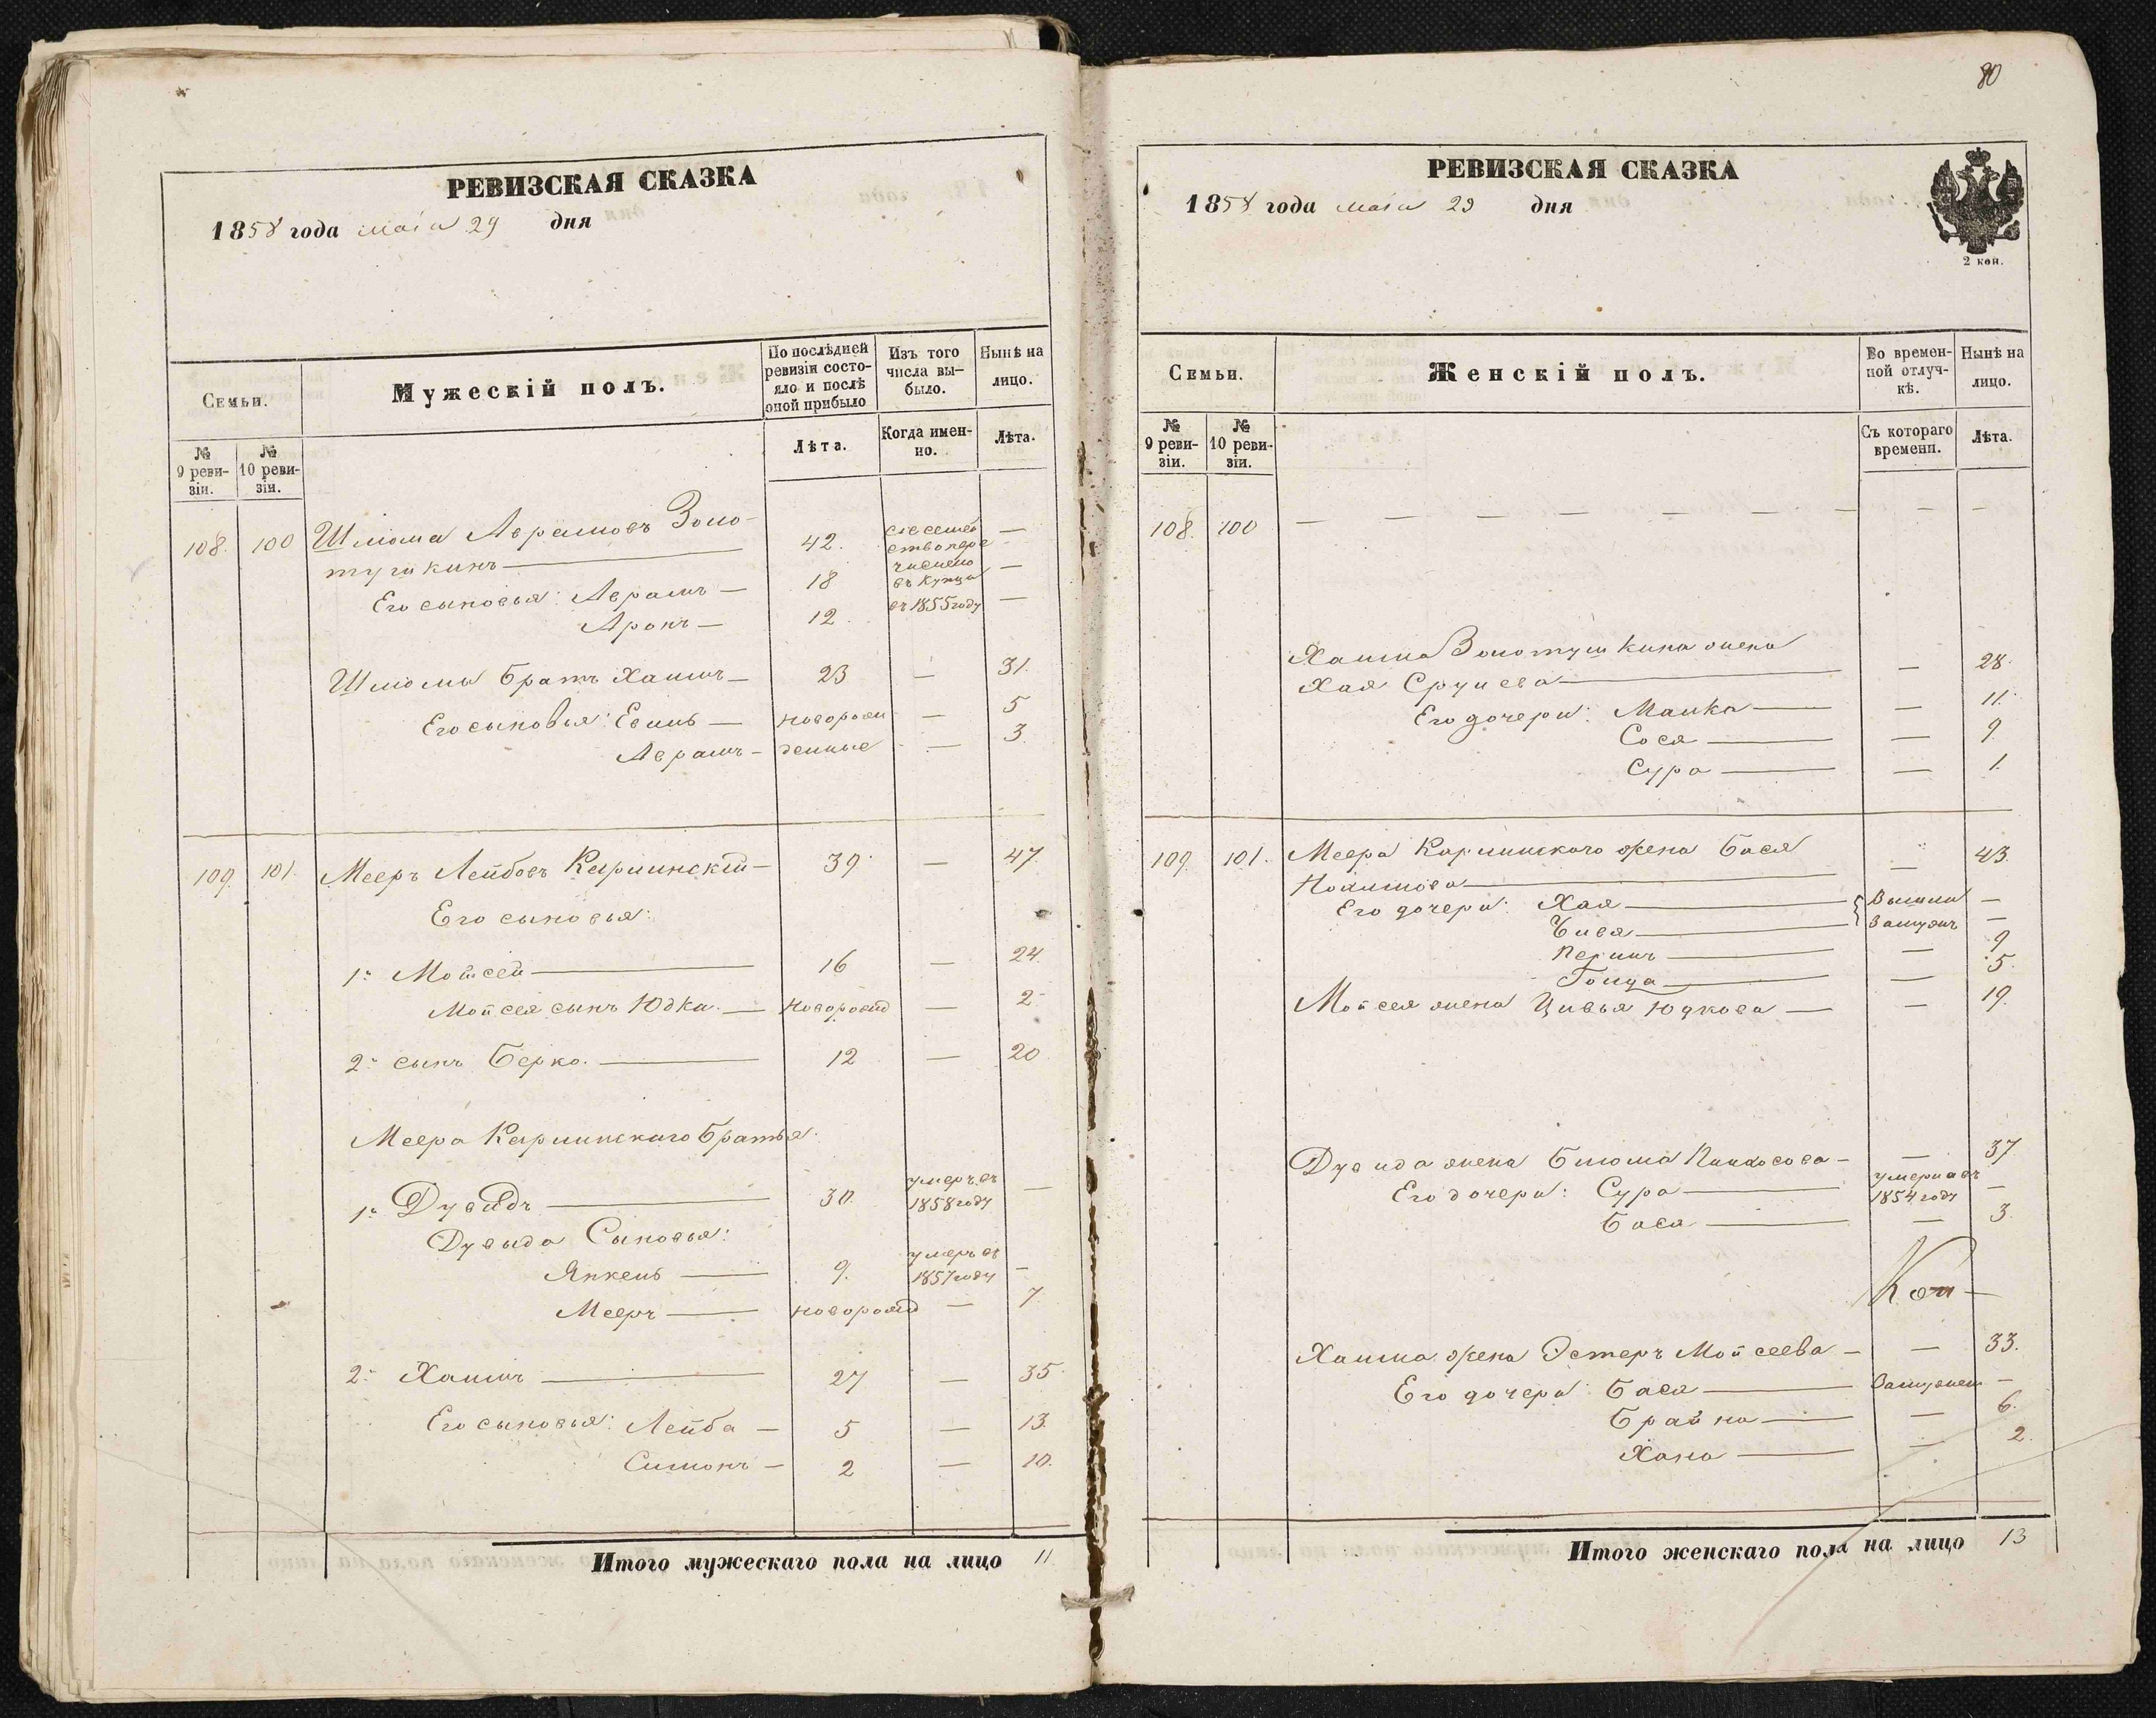 РЕВИЗСКАЯ СКАЗКА
1858 года маiя 29 дня
Семьи.
Мужескій полъ.
По послѣдней ревизіи состо-яло и послѣ оной прибыло
Изъ того числа вы-было.
Нынѣ на лицо.
№ 9 реви-зіи.
№ 10 реви-зіи.
Лѣта.
Когда имен-но.
Лѣта.
108. 100 Шлома Аврамовъ Золо- 42. —
тушкинъ
Его сыновья: Аврамъ — 18 —
Аронъ — 12. —
перечислено въ Купцы въ 1855 году
Шломы братъ Хаимъ — 23 — 31.
Его сыновья: Евель — новорож — 5
Аврамъ — денные — 3.
109. 101. Мееръ Лейбовъ Карлинскій — 39. — 47.
Его сыновья:
1й Мойсей — 16 — 24.
Мойсея сынъ Юдка. — новорожд — 2
2й сынъ Берко. — 12 — 20
Меера Карлинскаго братья:
1й Дувидъ — 30. умеръ въ 1858 году —
Дувыда Сыновья:
Янкель — 9. умеръ въ 1857 году —
Мееръ — новорожд — 7
2й Хаимъ — 27 — 35
Его сыновья: Лейба — 5 — 13.
Симонъ — 2 — 10.
Итого мужескаго пола на лицо 11.
80
РЕВИЗСКАЯ СКАЗКА
1858 года маiя 29 дня
2 коп.
Семьи.
Женскій полъ.
Во времен-ной отлуч-кѣ.
Нынѣ на лицо.
№ 9 реви-зіи.
№ 10 реви-зіи.
Съ котораго времени.
Лѣта.
108. 100 — — — — — — — — —
Хаима Золотушкина жена
Хая Срулева — — 28.
Его дочери: Малка — — 11.
Сося — — 9
Сура — — 1.
109. 101. Меера Карлинскаго жена Бася
Нохимова — — 43.
Его дочери: Хая — Вышли —
Замужъ —
Перлъ — — 9
Голда — — 5.
Мойсея жена Цивья Юдкова — — 19.
Дувида жена Блюма Пинхосова — — 37
Его дочери: Сура — умерла въ 1854 году —
Бася — — 3.
Хаима жена Эстеръ Мойсеева — — 33.
Его дочери: Бася — Замужем —
Брайна — — 6.
Хана — — 2.
Итого женскаго пола на лицо 13